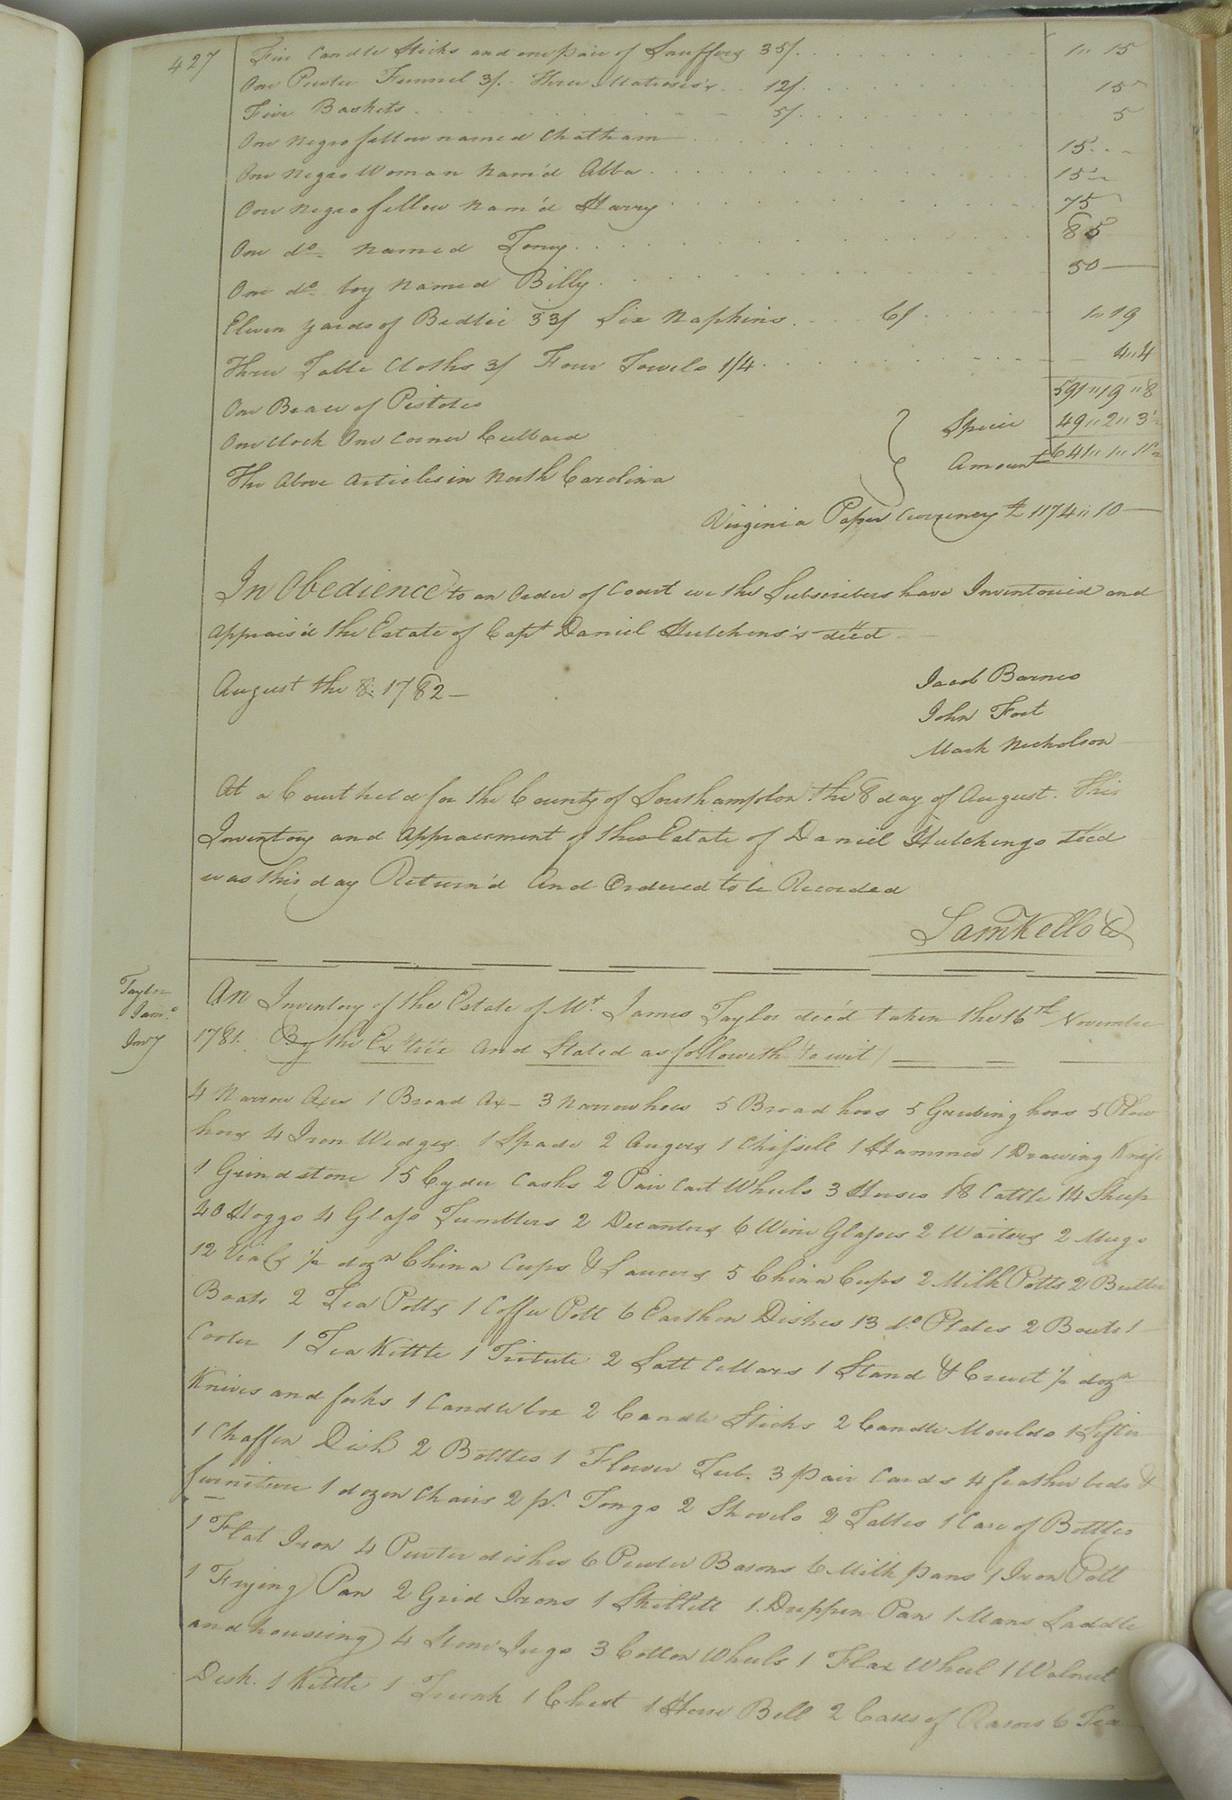 427
Five Candle Sticks and one pair of Snuffers 35/. 1 " 15
One Pewter Funnel 3/. Three Matrases 12/. 15
Five Baskets 5/. 5
One Negro fellow named Chatham 15
One Negro Woman Nam'd Abba 15
One Negro fellow Nam'd Harry 75
One do named Tony 85
One do boy Named Billy 50 —
Eleven yards of Bedtic 33/ Six Napkins 6/ 1 " 19
Three Table Cloths 3/ Four Towels 1/4 4 " 4
One Brace of Pistoles 591 " 19 " 8
One Clock One Corner Cubbard Specie 49 " 2 " 3½
The Above Articles in North Carolina Amount 641 " 1 " 11½
Virginia Paper Currency £ 1174 " 10 —
In Obedience to an Order of Court we the Subscribers have Inventoried and
Apprais'd the Estate of Capt Daniel Hutchens's decd
August the 8. 1782 —
Jacob Barnes
John Fort
Mark Nicholson
At a Court held for the County of Southampton the 8 day of August. This
Inventory and Appraisement of the Estate of Daniel Hutchings decd
was this day Return'd And Ordered to be Recorded
Saml Kello C
Taylor
Jams
Invy
An Inventory of the Estate of Mr. James Taylor dec'd taken the 16th November
1781. By the Extrix And Stated as followeth to wit
4 Narrow Axes 1 Broad Ax — 3 Narrow hoes 5 Broad hoes 5 Grubing hoes 5 Plow
hoes 4 Iron Wedges 1 Spade 2 Augers 1 Chissell 1 Hammer 1 Drawing Knife
1 Grindstone 15 Cyder Casks 2 Pair Cart Wheels 3 Horses 18 Cattle 14 Sheep
40 Hoggs 4 Glass Tumblers 2 Decanters 6 Wine Glasses 2 Waiters 2 Mugs
12 Vials ½ dozn China Cups & Saucers 5 China Cups 2 Milk Potts 2 Butter
Boats 2 Tea Potts 1 Coffee Pott 6 Earthen Dishes 13 do Plates 2 Bowls 1
Cooler 1 Tea Kettle 1 2 Salt Cellars 1 Stand & Cruet ½ dozn
Knives and forks 1 Candle box 2 Candle Sticks 2 Candle Moulds 1 Sifter
1 Chaffen Dish 2 Bottles 1 Flower Tub. 3 pair Cards 4 feather beds &
furniture 1 dozen Chairs 2 pr. Tongs 2 Shovels 2 Tables 1 Case of Bottles
1 Flat Iron 4 Pewter dishes 6 Pewter Basons 6 Milk pans 1 Iron Pott
1 Frying Pan 2 Grid Irons 1 Skillett 1 Drippen Pan 1 Mans Saddle
and housing 4 Stone Jugs 3 Cotton Wheels 1 Flax Wheel 1 Walnut
Desk. 1 Kettle 1 Trunk 1 Chest 1 Horse Bell 2 Cases of Rasors 6 Tea